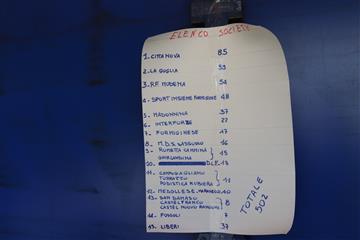 ELENCO SOCIETÀ
1. CITTANOVA 85
2. LA GUGLIA 59
3. R.F. MODENA 54
4. SPORT INSIEME 48
5. MADONNINA 37
6. INTERFORZE 22
7. FORMIGINESE 17
8. M.D.S. SASSUOLO 16
9. RUMETTA CAMMINA } 15
GHIRLANDINA
10. D.L.F. 13
11. CAMPOGALLIANO } 11
PODISTICA RUBIERA
12. MEDOLLESE 10
13. SAN DAMASO } 8
CASTELFRANCO
CASTEL NUOVO RANGONE
14. FOSSOLI 7
15. LIBERI 37
TOTALE
502